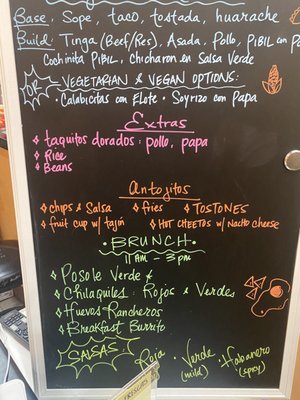 Base: Sope, taco, tostada, huarache
Build: Tinga (Beef/Res), Asada, Pollo, PIBIL con P
Cochinita PIBIL, Chicharon en Salsa Verde
OR VEGETARIAN & VEGAN OPTIONS:
• Calabicitas con Elote • Soyrizo con Papa
Extras
taquitos dorados: pollo, papa
Rice
Beans
Antojitos
chips & Salsa fries TOSTONES
fruit cup w/ tajin HOT CHEETOS w/ Nacho cheese
• BRUNCH •
11 AM - 3 pm
Posole Verde &
Chilaquiles: Rojos & Verdes
Huevos Rancheros
Breakfast Burrito
SALSAS: Roja • Verde • Habanero
(mild) (spicy)